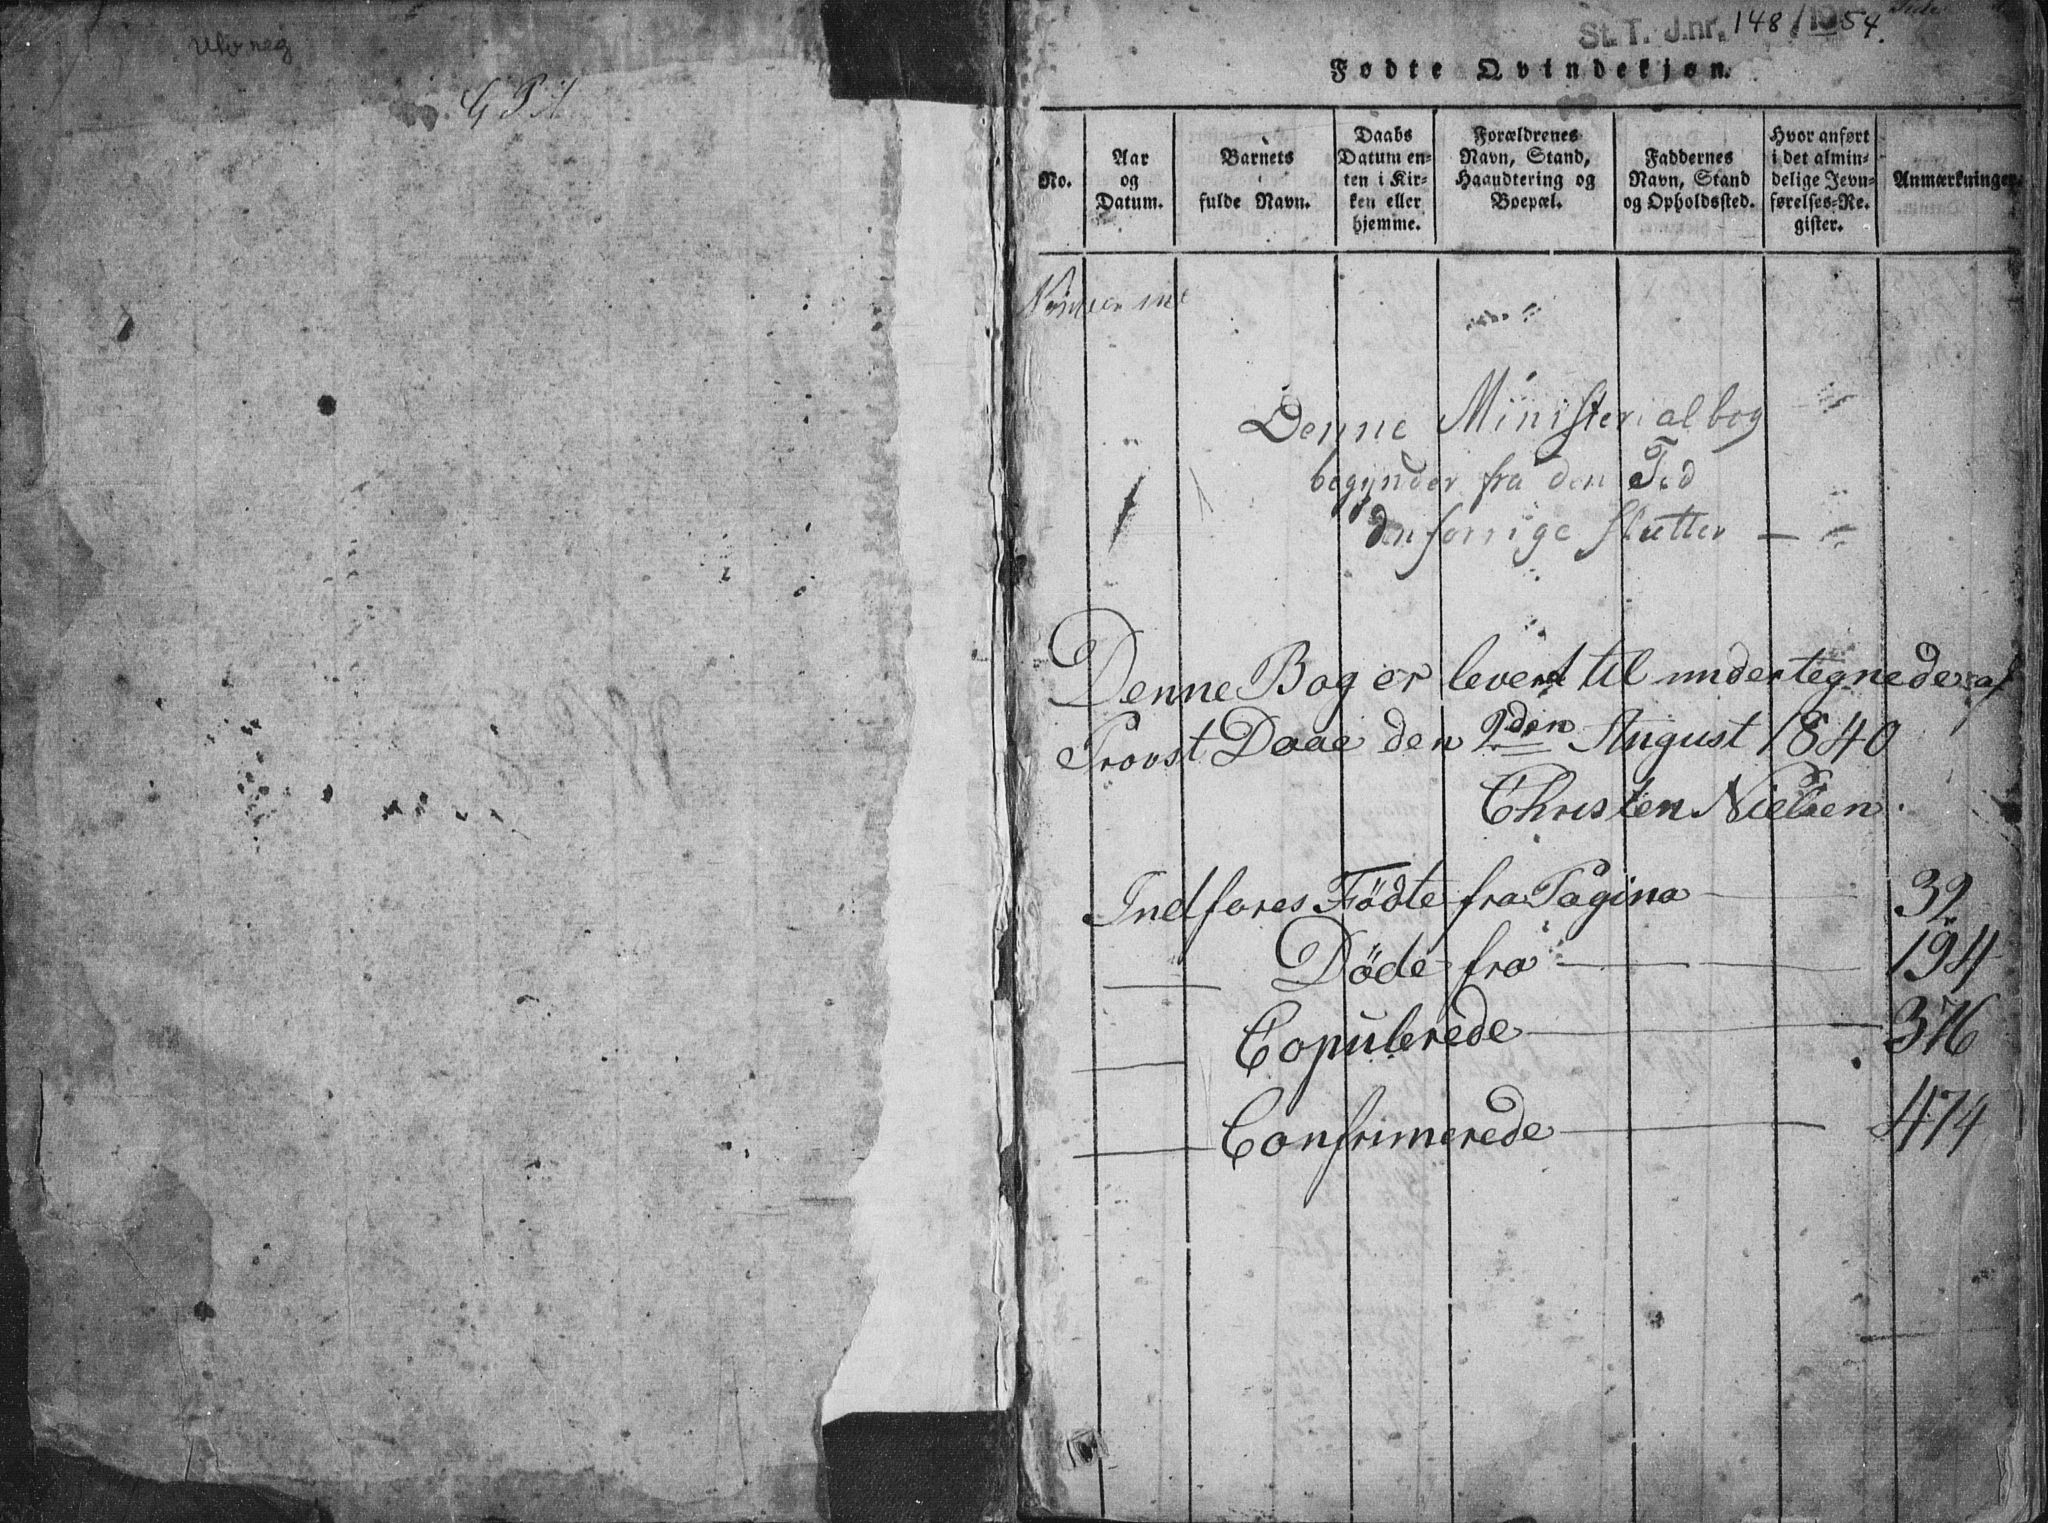 G P A
St. T. J.nr. 148/1954.
Side
Fødte Qvindekjøn.
No.
Aar
og
Datum.
Barnets
fulde Navn.
Daabs
Datum en-
ten i Kir-
ken eller
hjemme.
Forældrenes
Navn, Stand,
Haandtering og
Boepæl.
Faddernes
Navn, Stand
og Opholdssted.
Hvor anført
i det almin-
delige Jevn-
førelses-Re-
gister.
Anmærkninger.
Denne Ministerialbog
begynder fra den Tid
den forrige slutter —
Denne Bog er levert til undertegnede af
Provst Daae den 2den August 1840
Christen Nielsen.
Indføres Födte fra Pagina — 39
— Döde fra — 194
— Copulerede — 376
— Confrimerede — 474